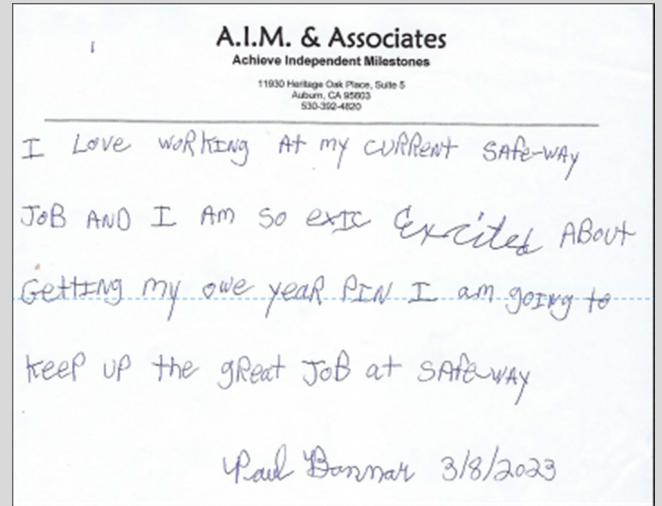 A.I.M. & Associates
Achieve Independent Milestones
11930 Heritage Oak Place, Suite 5
Auburn, CA 95603
530-392-4820
I Love working At my current SAfe-way
JoB AND I Am so exic Excited About
Getting my owe year PIN I am going to
keep up the great JoB at SAfe-way
Paul Bannar 3/8/2023